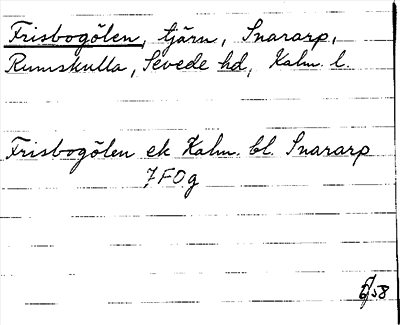 Frisbogölen, tjärn, Snararp,
Rumskulla, Sevede hd, Kalm. l.
Frisbogölen ek Kalm. bl. Snararp
7F0g